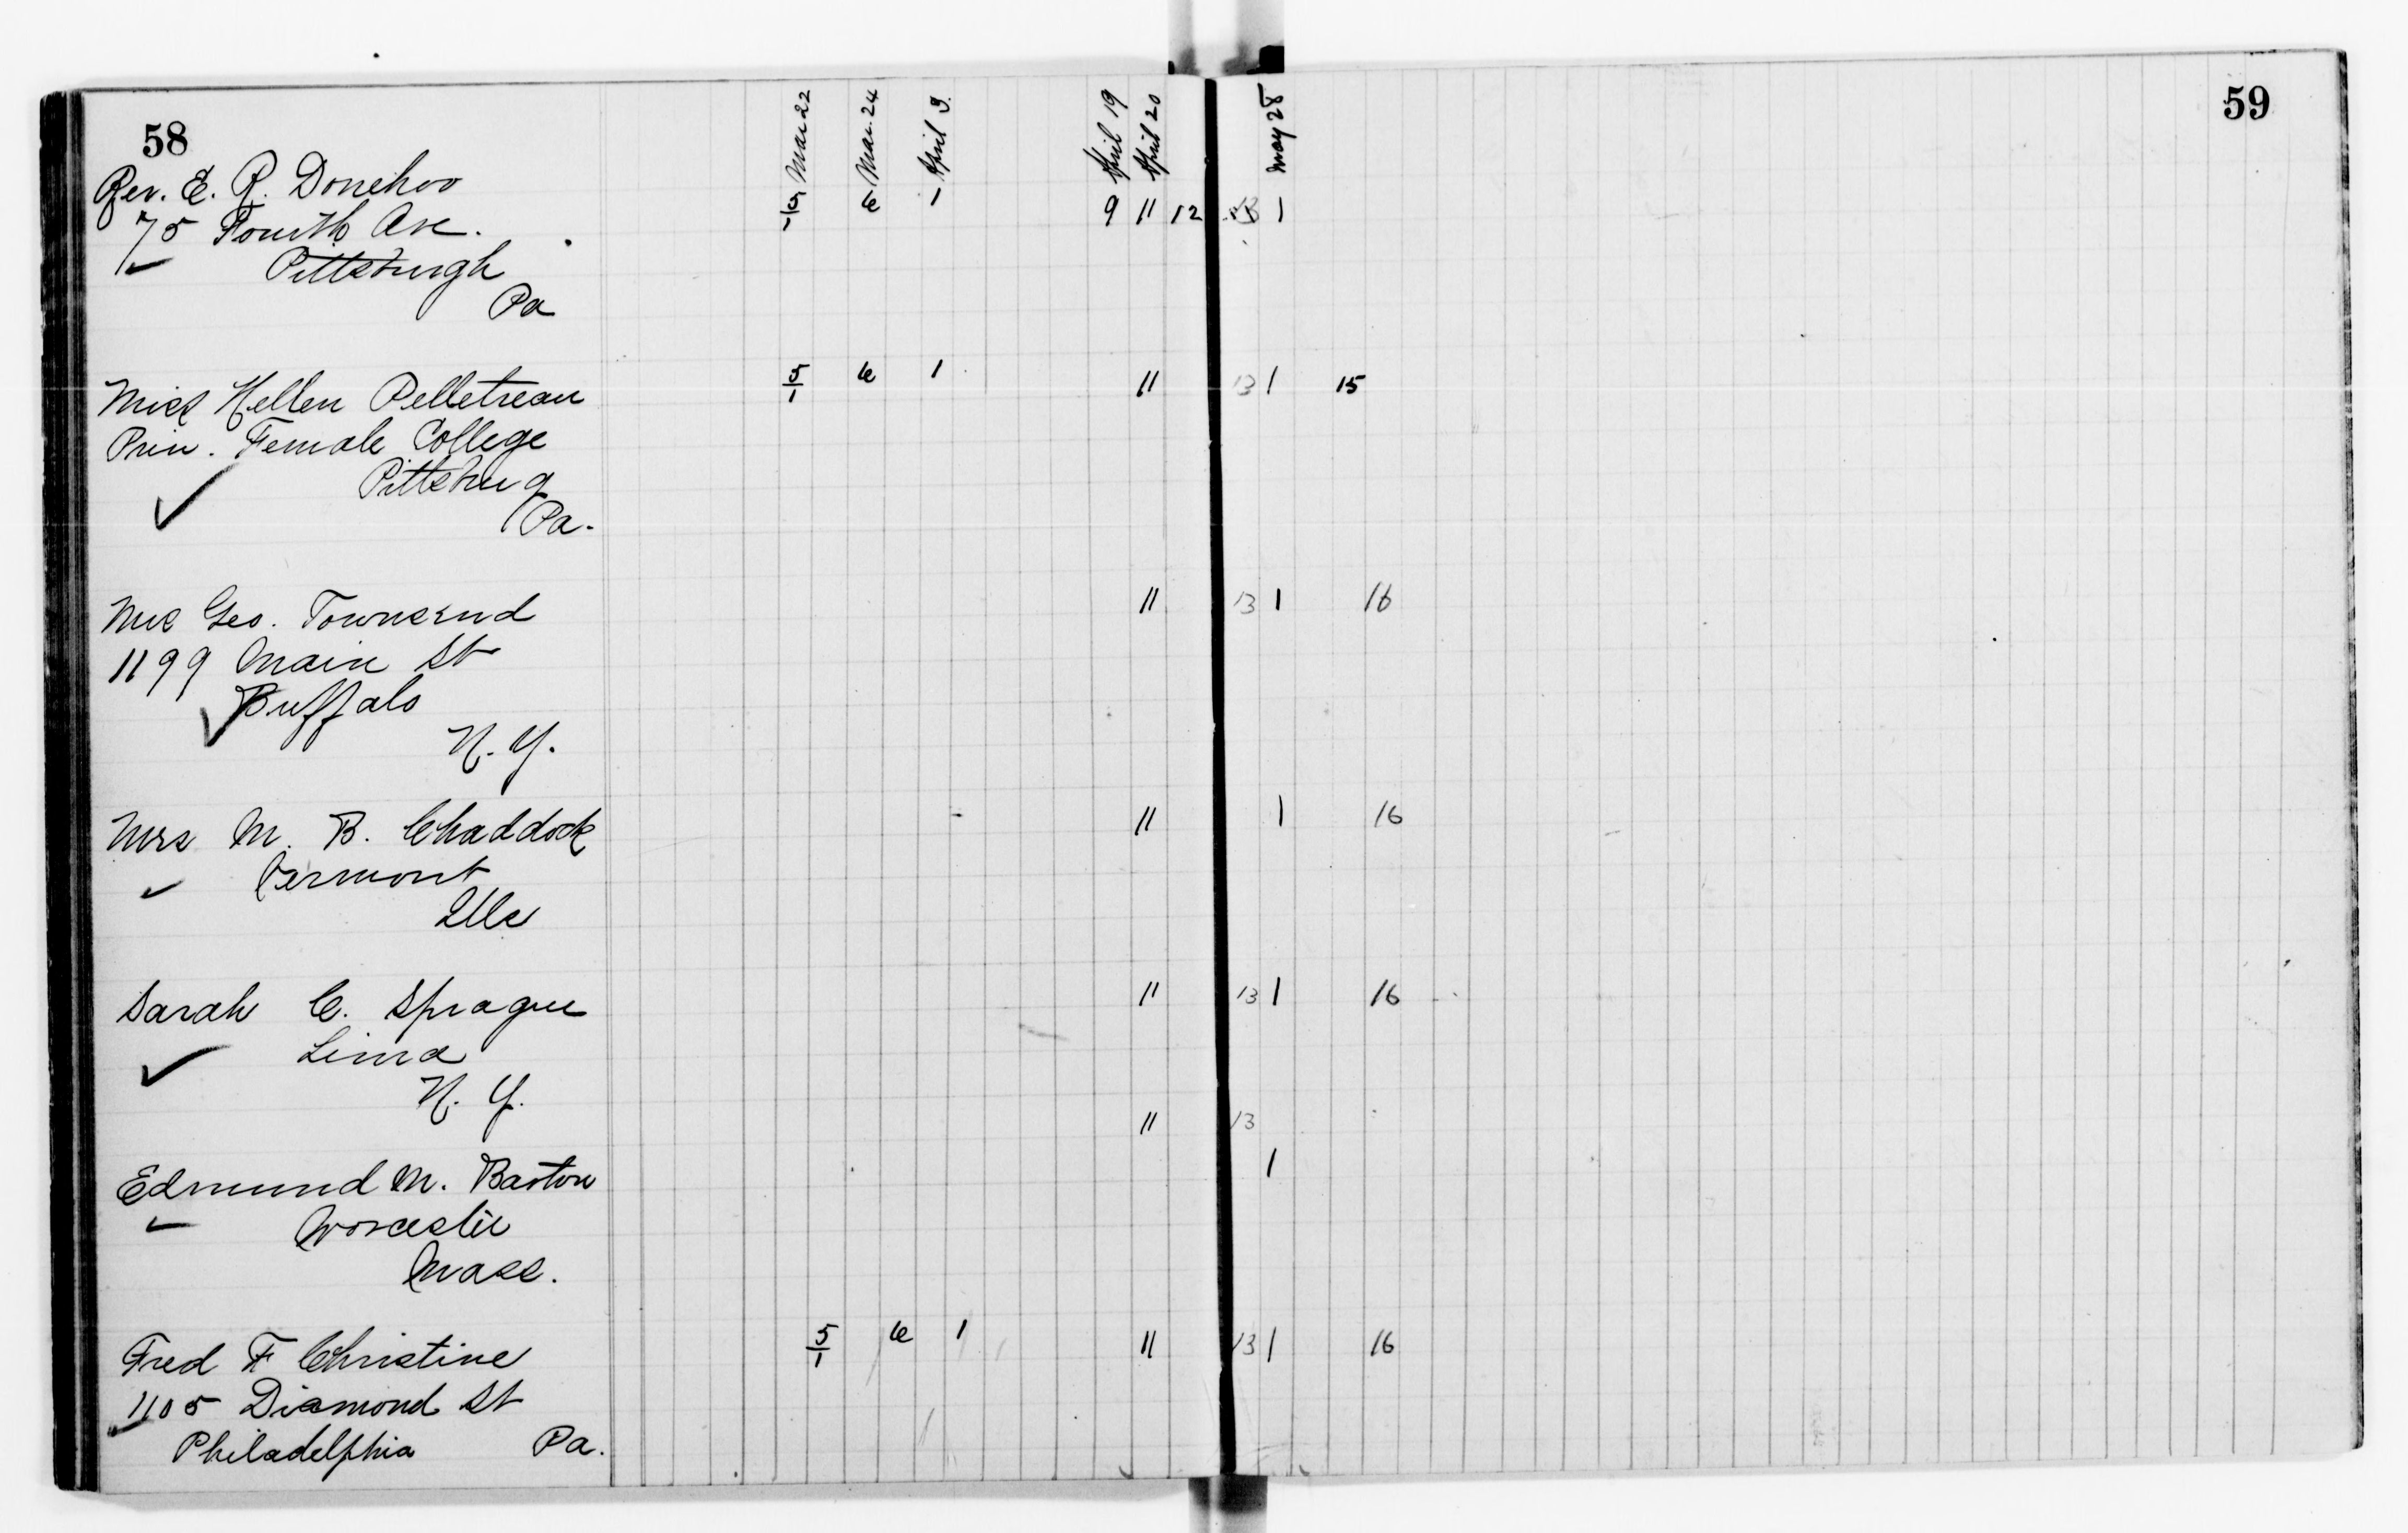 58
59
Mar 22
Mar. 24
April 9.
April 19
April 20
May 28
Rev. E. R. Donehoo
5/1 6 1 9 11 12 1
75 Fourth Ave.
Pittsburgh
Pa
Miss Hellen Pelletreau
5/1 6 1 11 13 1 15
Prin. Female College
Pittsburg
Pa.
Mrs Geo. Townsend
11 13 1 16
1199 Main St
Buffalo
N. Y.
Mrs M. B. Chaddock
11 1 16
Vermont
Ills
Sarah C. Sprague
11 13 1 16
Lima
N. Y.
11 13
1
Edmund M. Barton
Worcester
Mass.
Fred F Christine
5/1 6 1 11 13 1 16
1105 Diamond St
Philadelphia Pa.